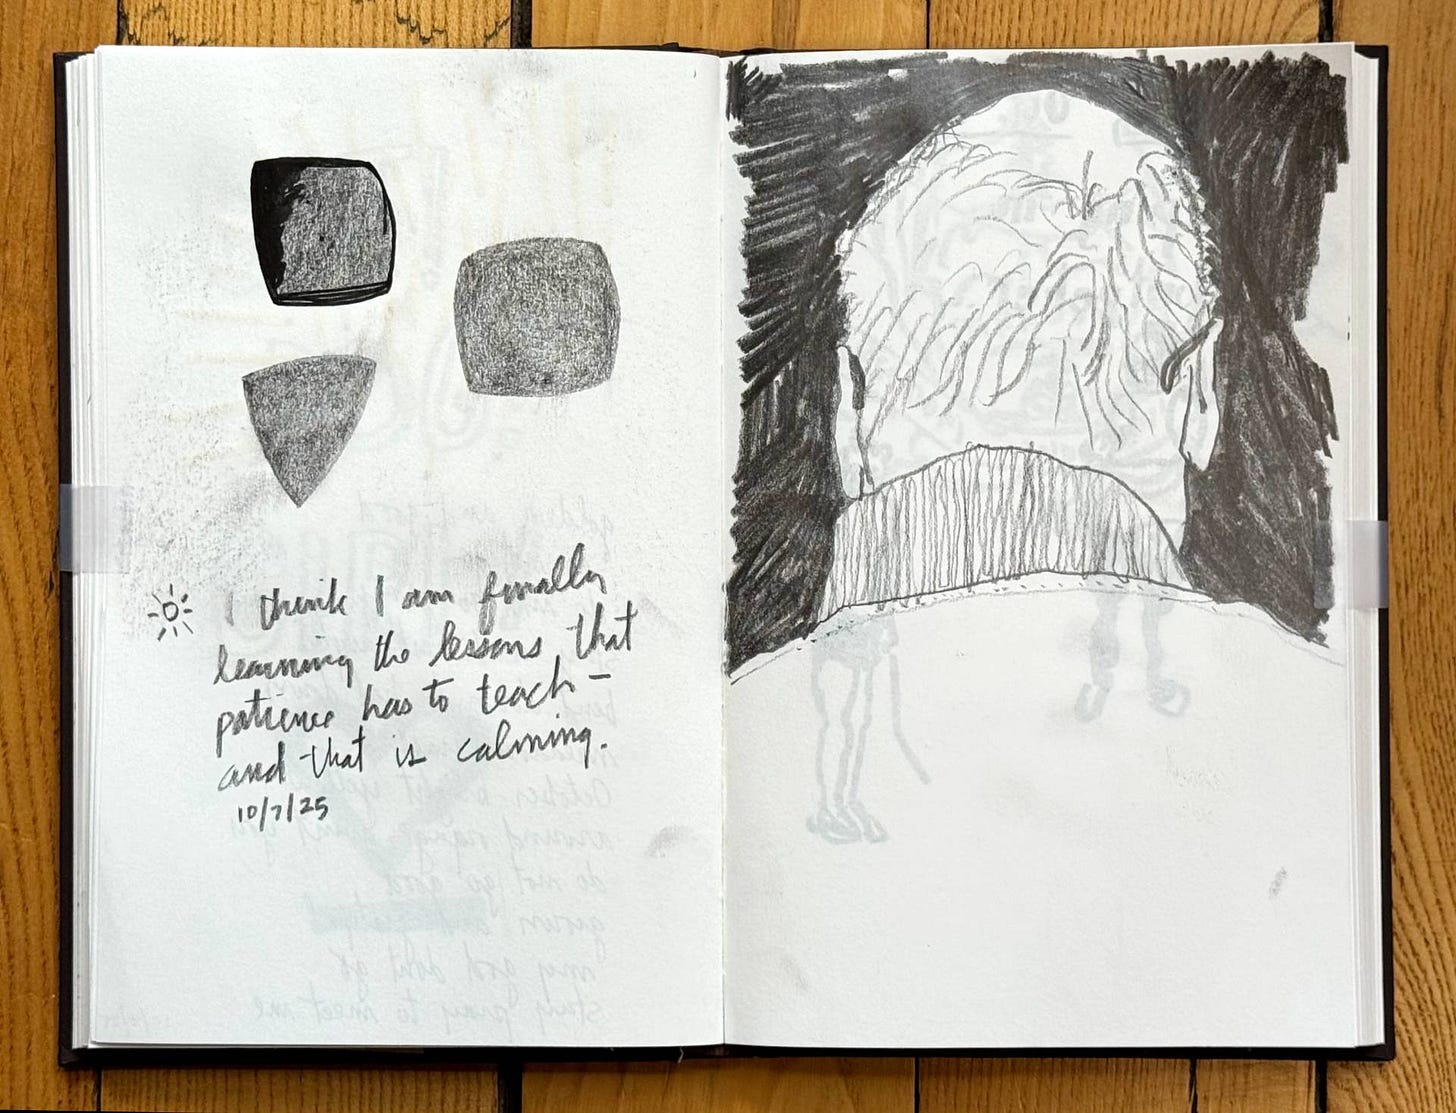 I think I am finally
learning the lessons that
patience has to teach –
and that is calming.
10/7/25